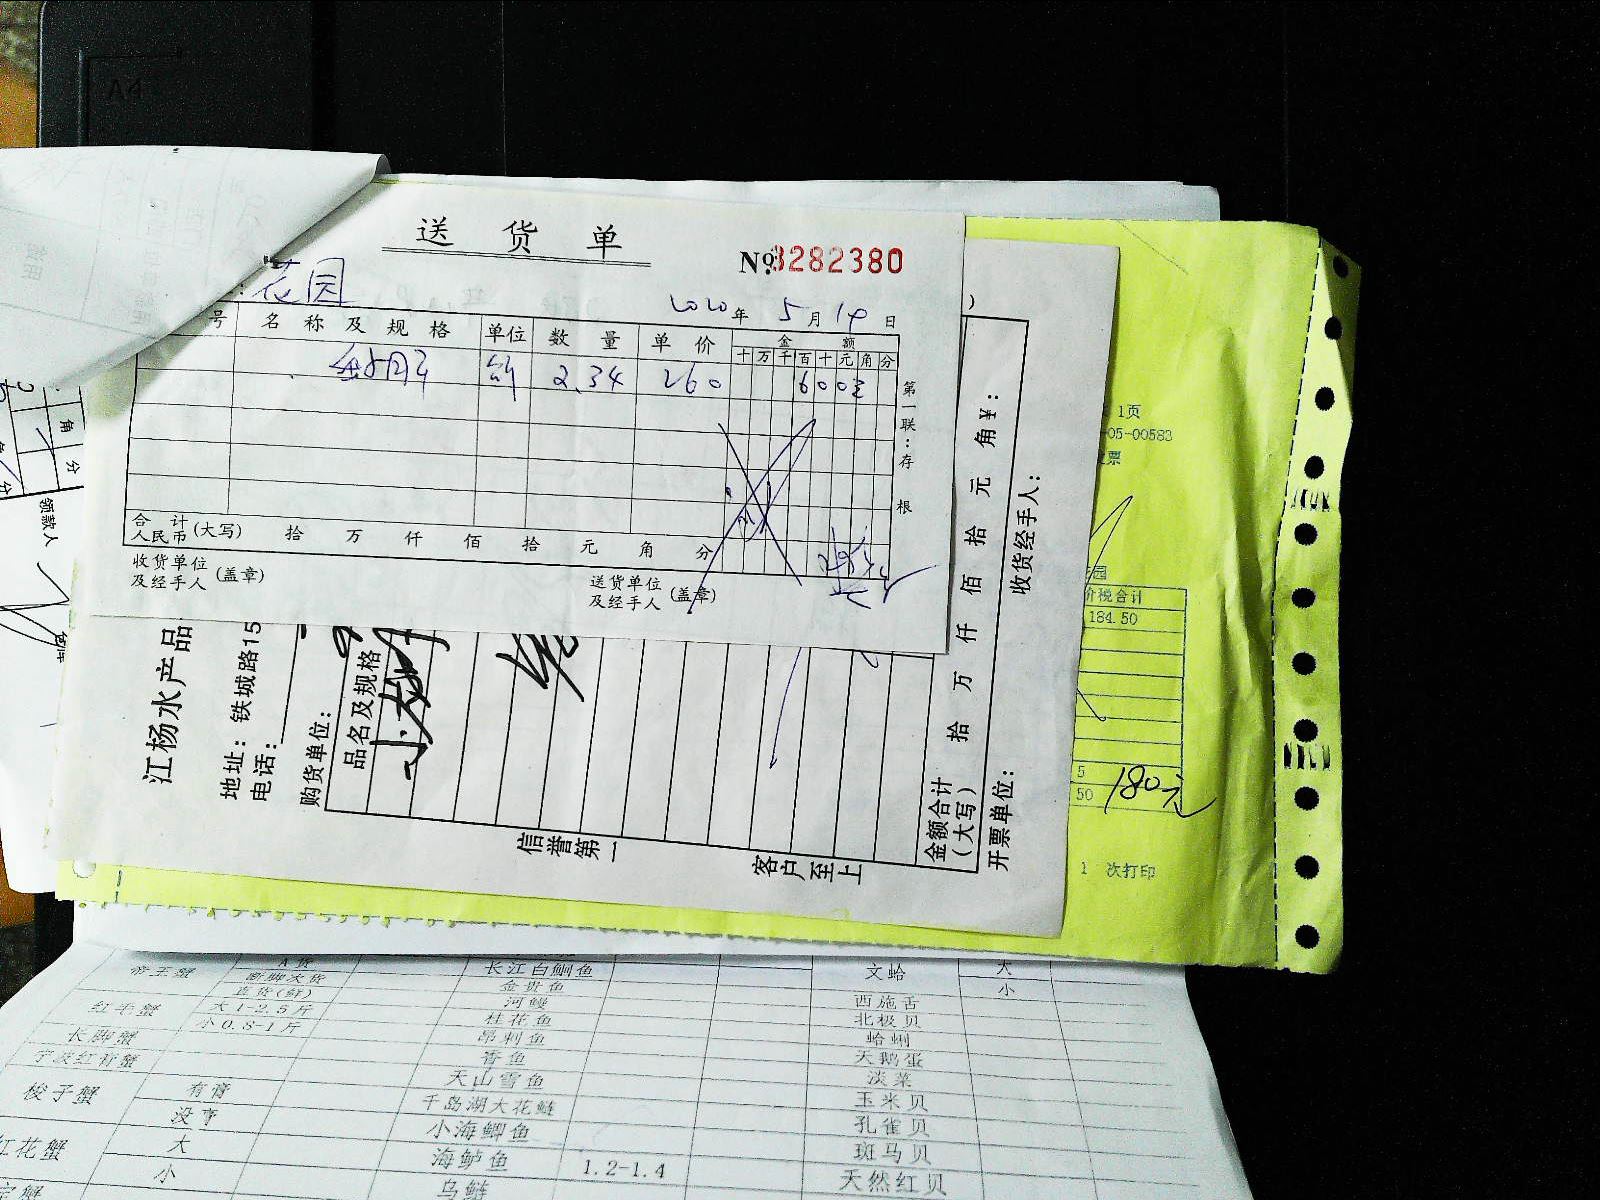 A4
送货单
№3282380
花园
2020年 5月19日
号 名称及规格 单位 数量 单价 金额
十万千百十元角分
斤 2.34 260 600元
第一联:存根
合计人民币(大写) 拾 万 仟 佰 拾 元 角 分
收货单位及经手人(盖章)
送货单位及经手人(盖章)
江杨水产品
地址:铁城路15
电话:
购货单位:
品名及规格
信誉第一
客户至上
金额合计(大写) 拾 万 仟 佰 拾 元 角¥:
开票单位:
收货经手人:
1页
-05-00583
票
园
价税合计
184.50
5
50
180元
1 次打印
角 分
领款人
帝王蟹 A货 长江白鮰鱼 文蛤 大
断脚次货 金贵鱼 小
红毛蟹 大1-2.5斤 河鳗 西施舌
小0.8-1斤 桂花鱼 北极贝
长脚蟹 昂刺鱼 蛤蜊
宁波红膏蟹 香鱼 天鹅蛋
梭子蟹 有膏 天山雪鱼 淡菜
没膏 千岛湖大花鲢 玉米贝
红花蟹 大 小海鲫鱼 孔雀贝
小 海鲈鱼 1.2-1.4 斑马贝
乌鲢 天然红贝